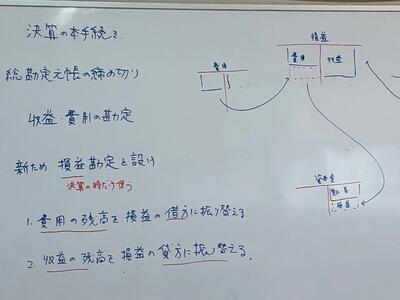 決算の本手続き
総勘定元帳の締め切り
収益・費用の勘定
新ため 損益勘定を設け
決算の時だけ使う
1. 費用の残高を損益の借方に振り替える
2. 収益の残高を損益の貸方に振り替える。
費用
損益
費用
収益
資本金